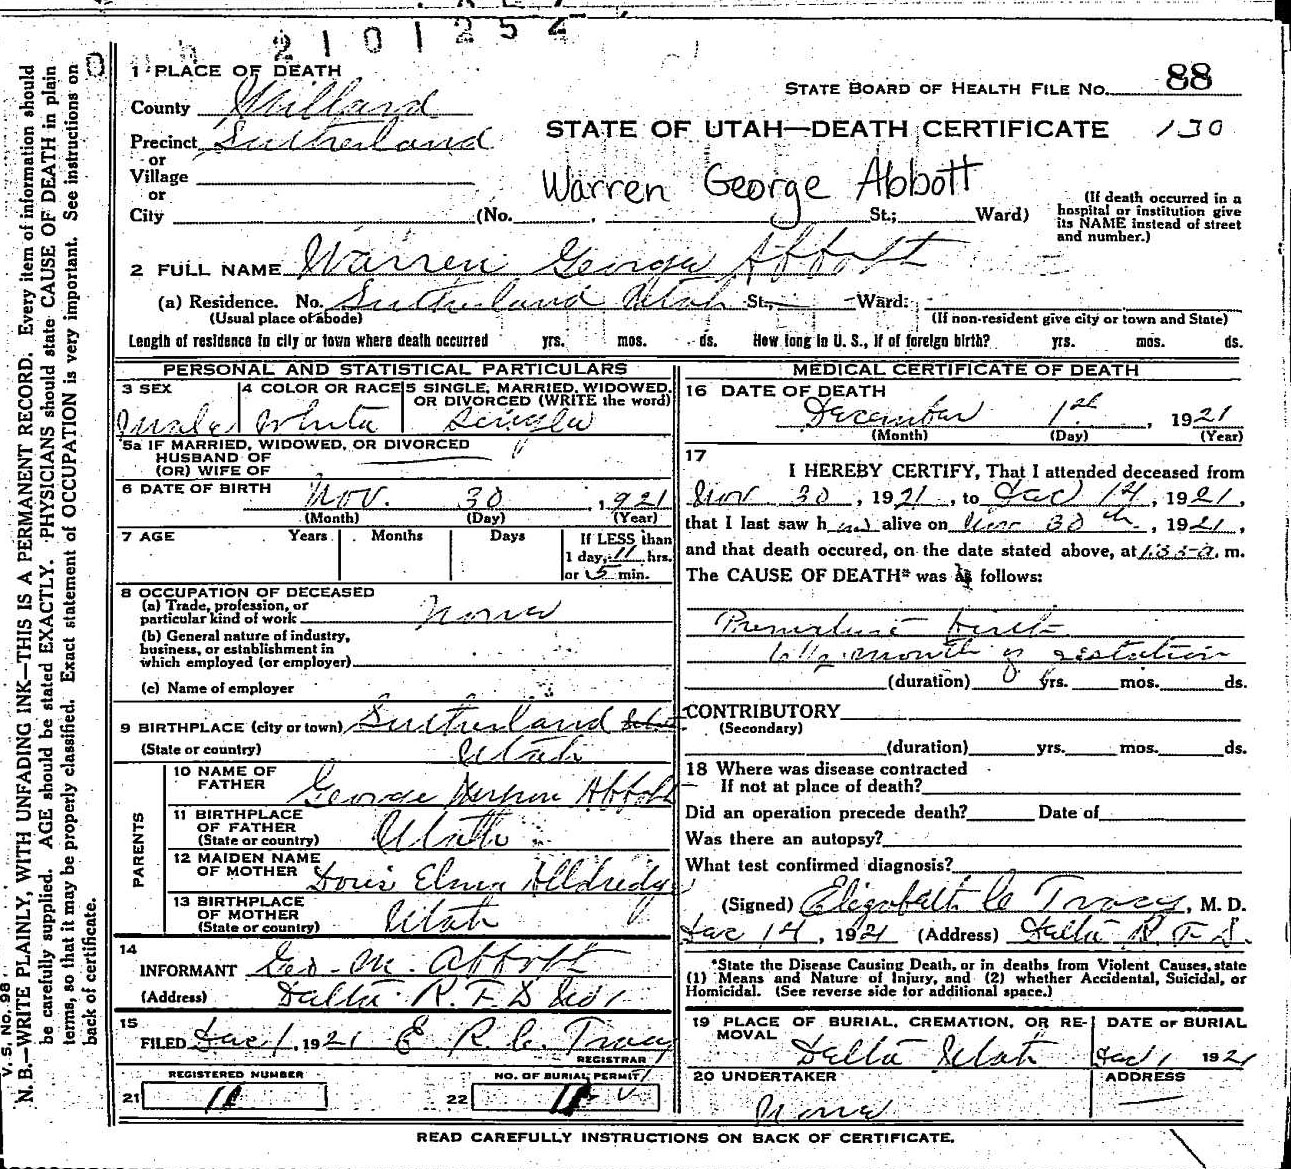 2101254
1 PLACE OF DEATH
STATE BOARD OF HEALTH FILE NO. 88
County Millard
STATE OF UTAH—DEATH CERTIFICATE 130
Precinct Sutherland
or
Village
Warren George Abbott
or
City (No. St.; Ward)
(If death occurred in a
hospital or institution give
its NAME instead of street
and number.)
2 FULL NAME Warren George Abbott
(a) Residence. No. Sutherland Utah St., Ward.
(Usual place of abode) (If non-resident give city or town and State)
Length of residence in city or town where death occurred yrs. mos. ds. How long in U. S., if of foreign birth? yrs. mos. ds.
PERSONAL AND STATISTICAL PARTICULARS
3 SEX
male
4 COLOR OR RACE
White
5 SINGLE, MARRIED, WIDOWED,
OR DIVORCED (WRITE the word)
Single
5a IF MARRIED, WIDOWED, OR DIVORCED
HUSBAND OF
(OR) WIFE OF
6 DATE OF BIRTH Nov. 30, 1921
(Month) (Day) (Year)
7 AGE Years Months Days
If LESS than
1 day, 11 hrs.
or 5 min.
8 OCCUPATION OF DECEASED
(a) Trade, profession, or
particular kind of work None
(b) General nature of industry,
business, or establishment in
which employed (or employer)
(c) Name of employer
9 BIRTHPLACE (city or town) Sutherland
(State or country) Utah
PARENTS
10 NAME OF
FATHER George Abbott
11 BIRTHPLACE
OF FATHER
(State or country) Utah
12 MAIDEN NAME
OF MOTHER Doris Elma Alldredge
13 BIRTHPLACE
OF MOTHER
(State or country) Utah
14
INFORMANT Geo. M. Abbott
(Address) Delta R. F. D No 1
15
FILED Dec 1, 1921 E R. C. Tracy
REGISTRAR
REGISTERED NUMBER
21
NO. OF BURIAL PERMIT
22
MEDICAL CERTIFICATE OF DEATH
16 DATE OF DEATH
December 1st, 1921
(Month) (Day) (Year)
17
I HEREBY CERTIFY, That I attended deceased from
Nov 30, 1921, to Dec 1st, 1921,
that I last saw him alive on Nov 30th, 1921,
and that death occured, on the date stated above, at 1:35 a. m.
The CAUSE OF DEATH* was as follows:
Premature birth
6 1/2 month of gestation
(duration) yrs. mos. ds.
CONTRIBUTORY
(Secondary)
(duration) yrs. mos. ds.
18 Where was disease contracted
If not at place of death?
Did an operation precede death? Date of
Was there an autopsy?
What test confirmed diagnosis?
(Signed) Elizabeth C Tracy, M. D.
Dec 1st, 1921 (Address) Delta R. F. D.
*State the Disease Causing Death, or in deaths from Violent Causes, state
(1) Means and Nature of Injury, and (2) whether Accidental, Suicidal, or
Homicidal. (See reverse side for additional space.)
19 PLACE OF BURIAL, CREMATION, OR RE-
MOVAL
Delta Utah
DATE OF BURIAL
Dec 1 1921
20 UNDERTAKER
None
ADDRESS
READ CAREFULLY INSTRUCTIONS ON BACK OF CERTIFICATE.
V. S. No. 98
N. B.—WRITE PLAINLY, WITH UNFADING INK—THIS IS A PERMANENT RECORD. Every item of information should
be carefully supplied. AGE should be stated EXACTLY. PHYSICIANS should state CAUSE OF DEATH in plain
terms, so that it may be properly classified. Exact statement of OCCUPATION is very important. See instructions on
back of certificate.